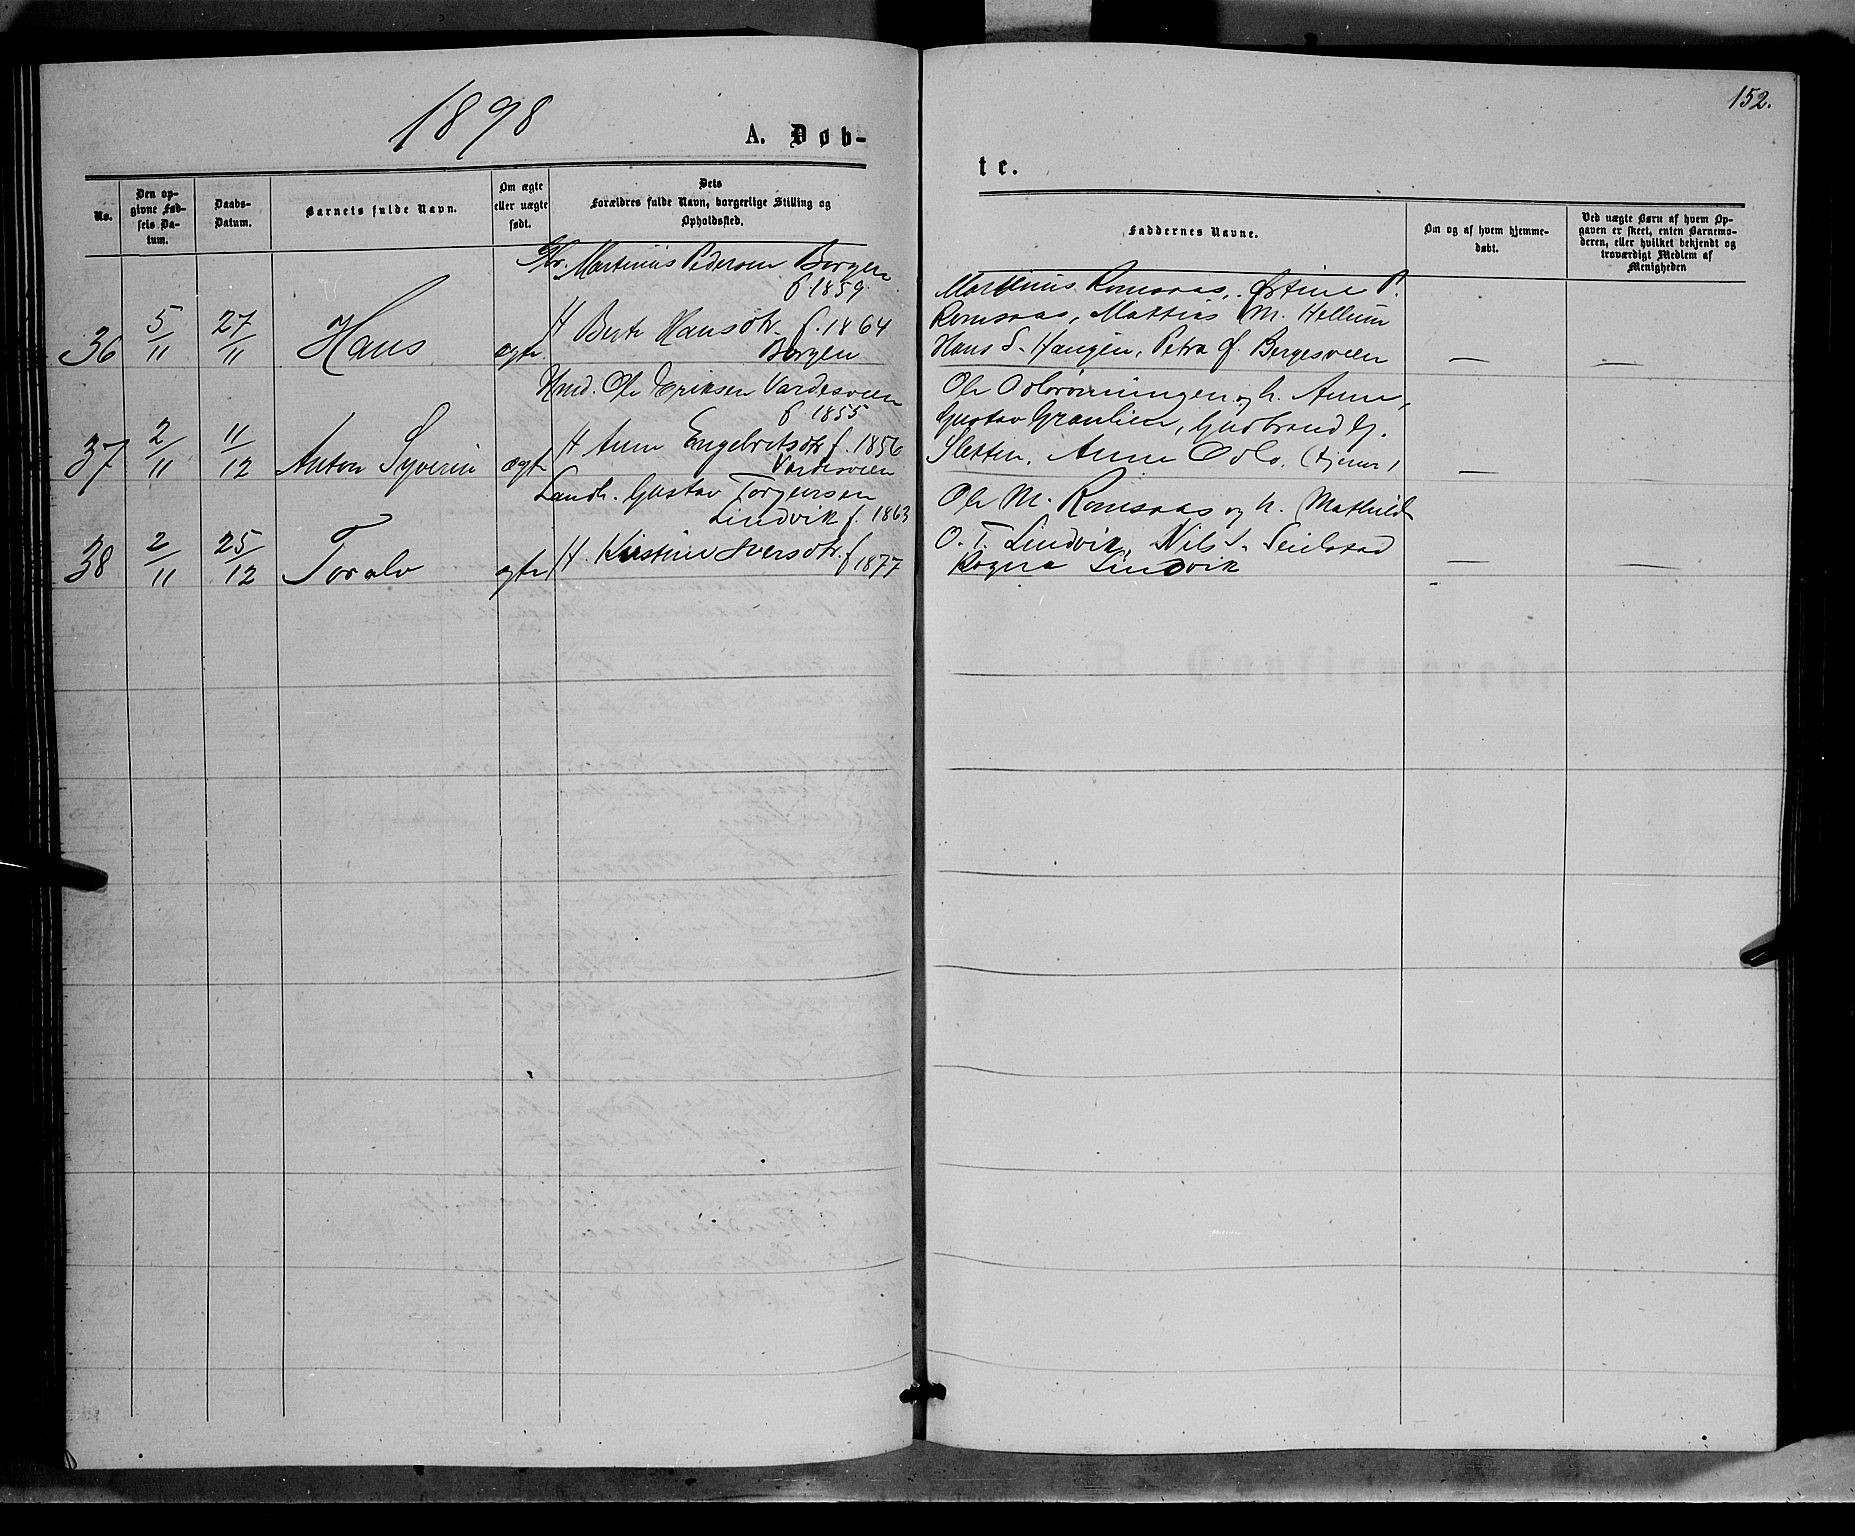 1898
152.
A. Døb-
te.
No.
Den op-
givne Fød-
sels Da-
tum.
Daabs-
Datum.
Barnets fulde Navn.
Om ægte
eller uægte
født.
Dets
Forældres fulde Navn, borgerlige Stilling og
Opholdssted.
Faddernes Navne.
Om og af hvem hjemme-
døbt.
Ved uægte Børn af hvem Op-
gaven er skeet, enten Barnemo-
deren, eller hvilket bekjendt og
troværdigt Medlem af
Menigheden
36
5/11
27/11
Hans
ægte
Martinius Pedersen Borgen
f 1859.
H Berte Hansdtr. f. 1864
Borgen
Martinius Romsaas, P.
Romsaas, Mattias M. Hellum
Hans S. Haugen, Petra J. Bergesveen
—
—
37
2/11
11/12
Anton Syverin
ægte
Hmd. Ole Eriksen Vardesveen
f 1855
H Anne Engebretsdtr f. 1856
Vardesveen
Ole og h. Anne,
Gustav Granlien, Gudbrand G.
Sletten, Anne Oslo. (tjener)
—
—
38
2/11
25/12
Toralv
ægte
Landh. Gustav Torgersen
Lindvik f. 1863
H. Kirstine Iversdtr. f 1877
Ole M. Romsaas og h. Mathilde
O. T. Lindvik, Nils S. Seielstad
Ragna Lindvik
—
—